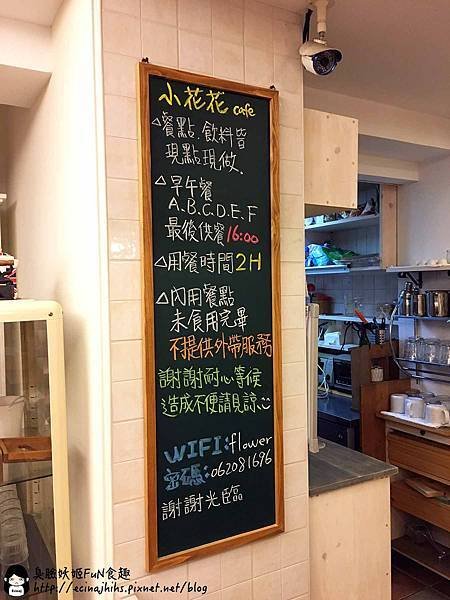 小花花 cafe
△餐點.飲料皆
現點現做.
△早午餐
A.B.C.D.E.F
最後供餐16:00
△用餐時間2H
△內用餐點
未食用完畢
不提供外帶服務
謝謝耐心等候
造成不便請見諒
WIFI:flower
密碼:062081696
謝謝光臨
臭臉妖姬FuN食趣
http://ecinajhihs.pixnet.net/blog